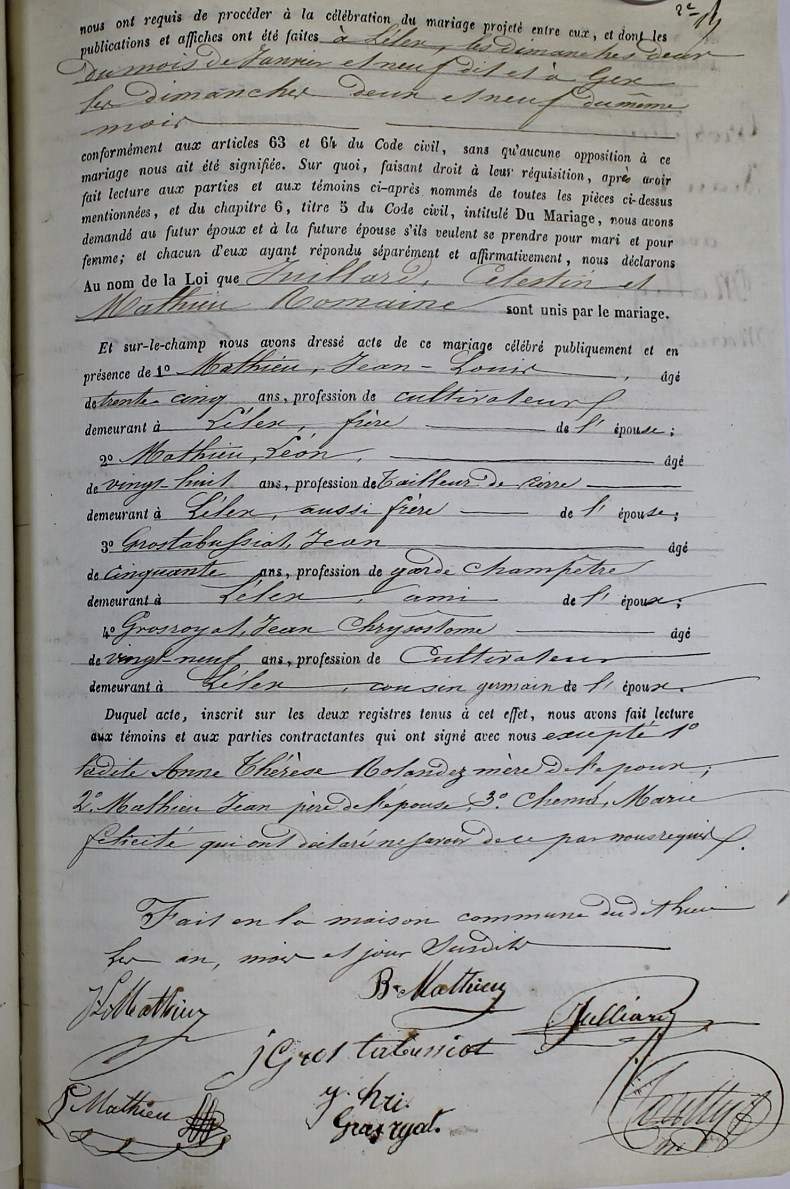 nous ont requis de procéder à la célébration du mariage projeté entre eux, et dont les
publications et affiches ont été faites à Lélex, les dimanches deux
du mois de Janvier et neuf dit et à Gex
les dimanches deux et neuf du même
mois
conformément aux articles 63 et 64 du Code civil, sans qu'aucune opposition à ce
mariage nous ait été signifiée. Sur quoi, faisant droit à leur réquisition, après avoir
fait lecture aux parties et aux témoins ci-après nommés de toutes les pièces ci-dessus
mentionnées, et du chapitre 6, titre 5 du Code civil, intitulé Du Mariage, nous avons
demandé au futur époux et à la future épouse s'ils veulent se prendre pour mari et pour
femme; et chacun d'eux ayant répondu séparément et affirmativement, nous déclarons
Au nom de la Loi que Juillard, Célestin et
Mathieu Romaine sont unis par le mariage.
Et sur-le-champ nous avons dressé acte de ce mariage célébré publiquement et en
présence de 1º Mathieu, Jean-Louis, âgé
de trente cinq ans, profession de cultivateur
demeurant à Lélex, frère de l'épouse;
2º Mathieu, Léon, âgé
de vingt-huit ans, profession de Tailleur de pierre
demeurant à Lélex, aussi frère de l'épouse;
3º Grostabussiat, Jean âgé
de cinquante ans, profession de garde champêtre
demeurant à Lélex, ami de l'époux;
4º Grosroyat, Jean Chrysostôme âgé
de vingt-neuf ans, profession de Cultivateur
demeurant à Lélex, cousin germain de l'époux.
Duquel acte, inscrit sur les deux registres tenus à cet effet, nous avons fait lecture
aux témoins et aux parties contractantes qui ont signé avec nous excepté 1º
ladite Anne Thérèse Rolandez mère de l'époux;
2º Mathieu Jean père de l'épouse, 3º Marie
félicité qui ont déclaré ne savoir de ce par nous requis.
Fait en la maison commune dudit lieu
les an, mois et jour susdits
JL Mathieu
Bt Mathieu
Julliard
J Gros tabussiat
L Mathieu
J. hri.
Grasryat.